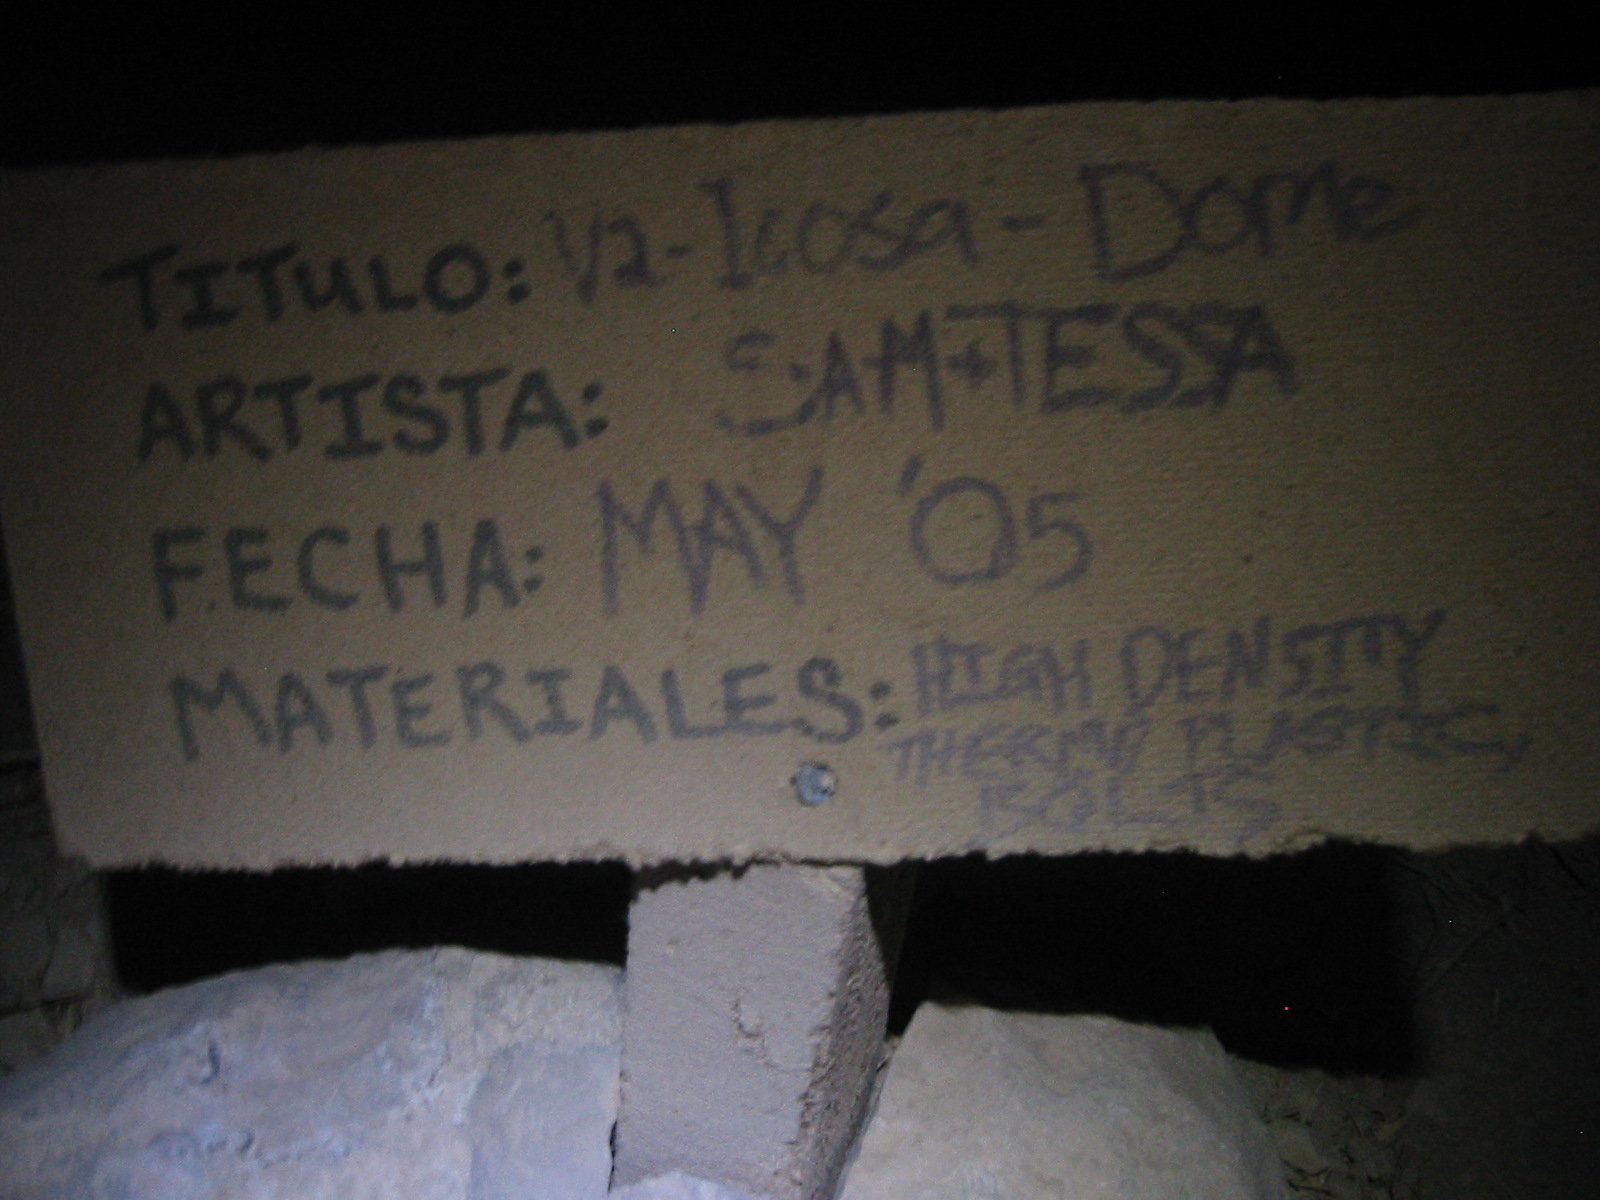 TITULO: 1/2-Icosa-Dome
ARTISTA: SAM+TESSA
FECHA: MAY '05
MATERIALES: HIGH DENSITY
THERMO PLASTIC,
BOLTS